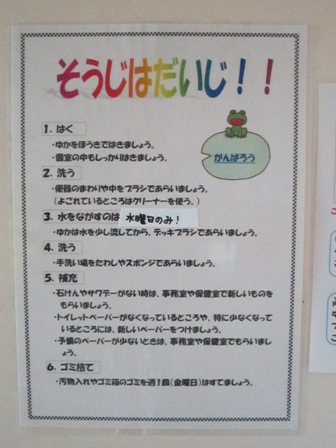 そうじはだいじ！！
がんばろう
1. はく
・ゆかをほうきではきましょう。
・個室の中もしっかりはきましょう。
2. 洗う
・便器のまわりや中をブラシであらいましょう。
（よごれているところはクリーナーを使う。）
3. 水をながすのは 水曜日のみ！
・ゆかは水を少し流してから、デッキブラシであらいましょう。
4. 洗う
・手洗い場をたわしやスポンジであらいましょう。
5. 補充
・石けんやサワデーがない時は、事務室や保健室で新しいものを
もらいましょう。
・トイレットペーパーがなくなっているところや、特に少なくなって
いるところには、新しいペーパーをつけましょう。
・予備のペーパーが少ないときは、事務室や保健室でもらいましょ
う。
6. ゴミ捨て
・汚物入れやゴミ箱のゴミを週1回（金曜日）はすてましょう。